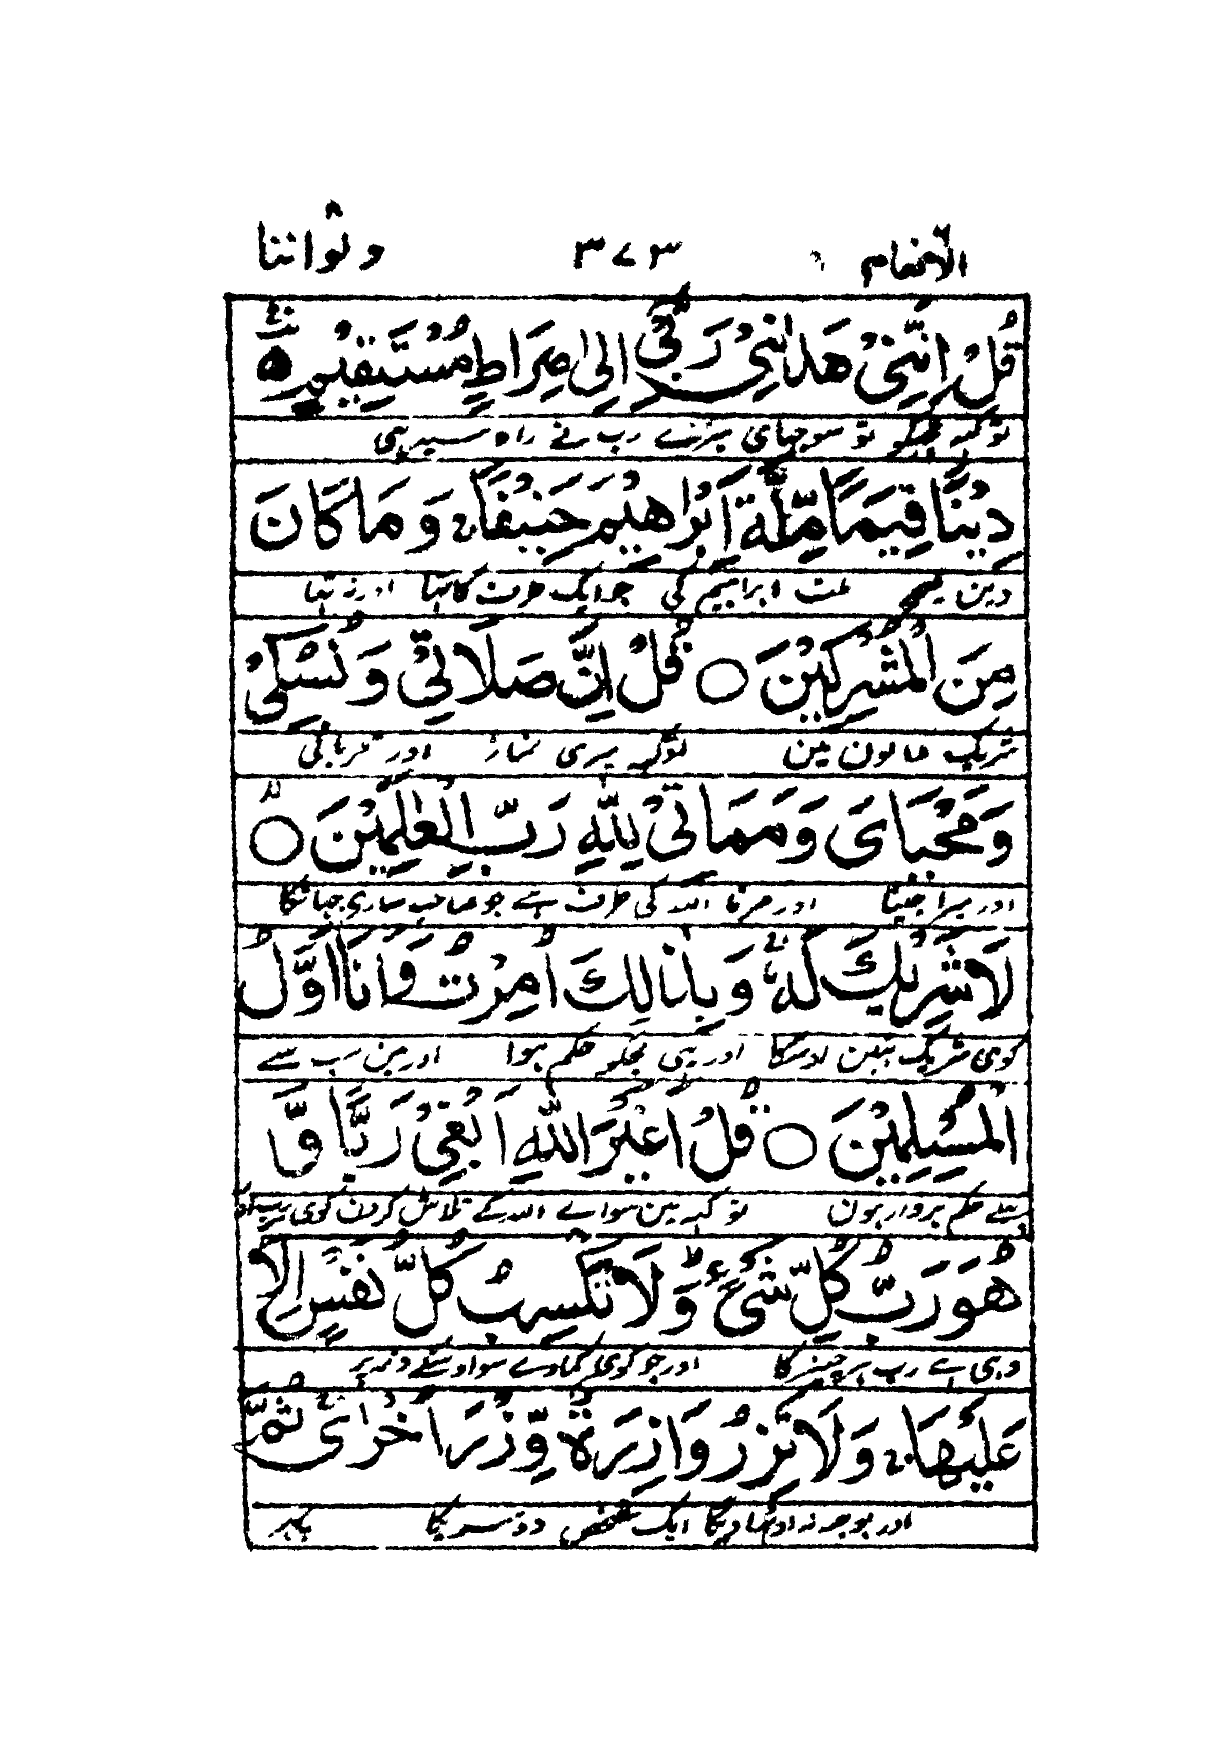 الانعام ٦ ٣٧٣ ولو اننا ٨
قُلْ اِنَّنِیْ هَدٰىنِیْ رَبِّیْۤ اِلٰى صِرَاطٍ مُّسْتَقِیْمٍ
تو کہہ مجھکو تو سوجہائی میرے رب نے راہ سیدہی
دِیْنًا قِیَمًا مِّلَّةَ اِبْرٰهِیْمَ حَنِیْفًا وَ مَا كَانَ
دین صحیح ملت ابراہیم کی جو ایک طرف کا تہا اور نہ تہا
مِنَ الْمُشْرِكِیْنَ ○ قُلْ اِنَّ صَلَاتِیْ وَ نُسُكِیْ
شریک والون مین تو کہہ میری نماز اور قربانی
وَ مَحْیَایَ وَ مَمَاتِیْ لِلّٰهِ رَبِّ الْعٰلَمِیْنَ ○
اور میرا جینا اور مرنا اللہ کی طرف ہے جو صاحب ساری جہان کا
لَا شَرِیْكَ لَهٗ وَ بِذٰلِكَ اُمِرْتُ وَ اَنَا اَوَّلُ
کوئی شریک نہین اوسکا اور یہی مجکو حکم ہوا اور مین سب سے
الْمُسْلِمِیْنَ ○ قُلْ اَغَیْرَ اللّٰهِ اَبْغِیْ رَبًّا وَّ
پہلے حکم بردار ہون تو کہہ مین سواے اللہ کے تلاش کرون کوئی رب اور
هُوَ رَبُّ كُلِّ شَیْءٍ وَ لَا تَكْسِبُ كُلُّ نَفْسٍ اِلَّا
وہی ہے رب ہر چیز کا اور جو کوئی کماوے سو اوسکے ذمہ پر
عَلَیْهَا وَ لَا تَزِرُ وَازِرَةٌ وِّزْرَ اُخْرٰى ثُمَّ
اور بوجہ نہ اوٹھاویگا ایک شخص دوسریکا پہر